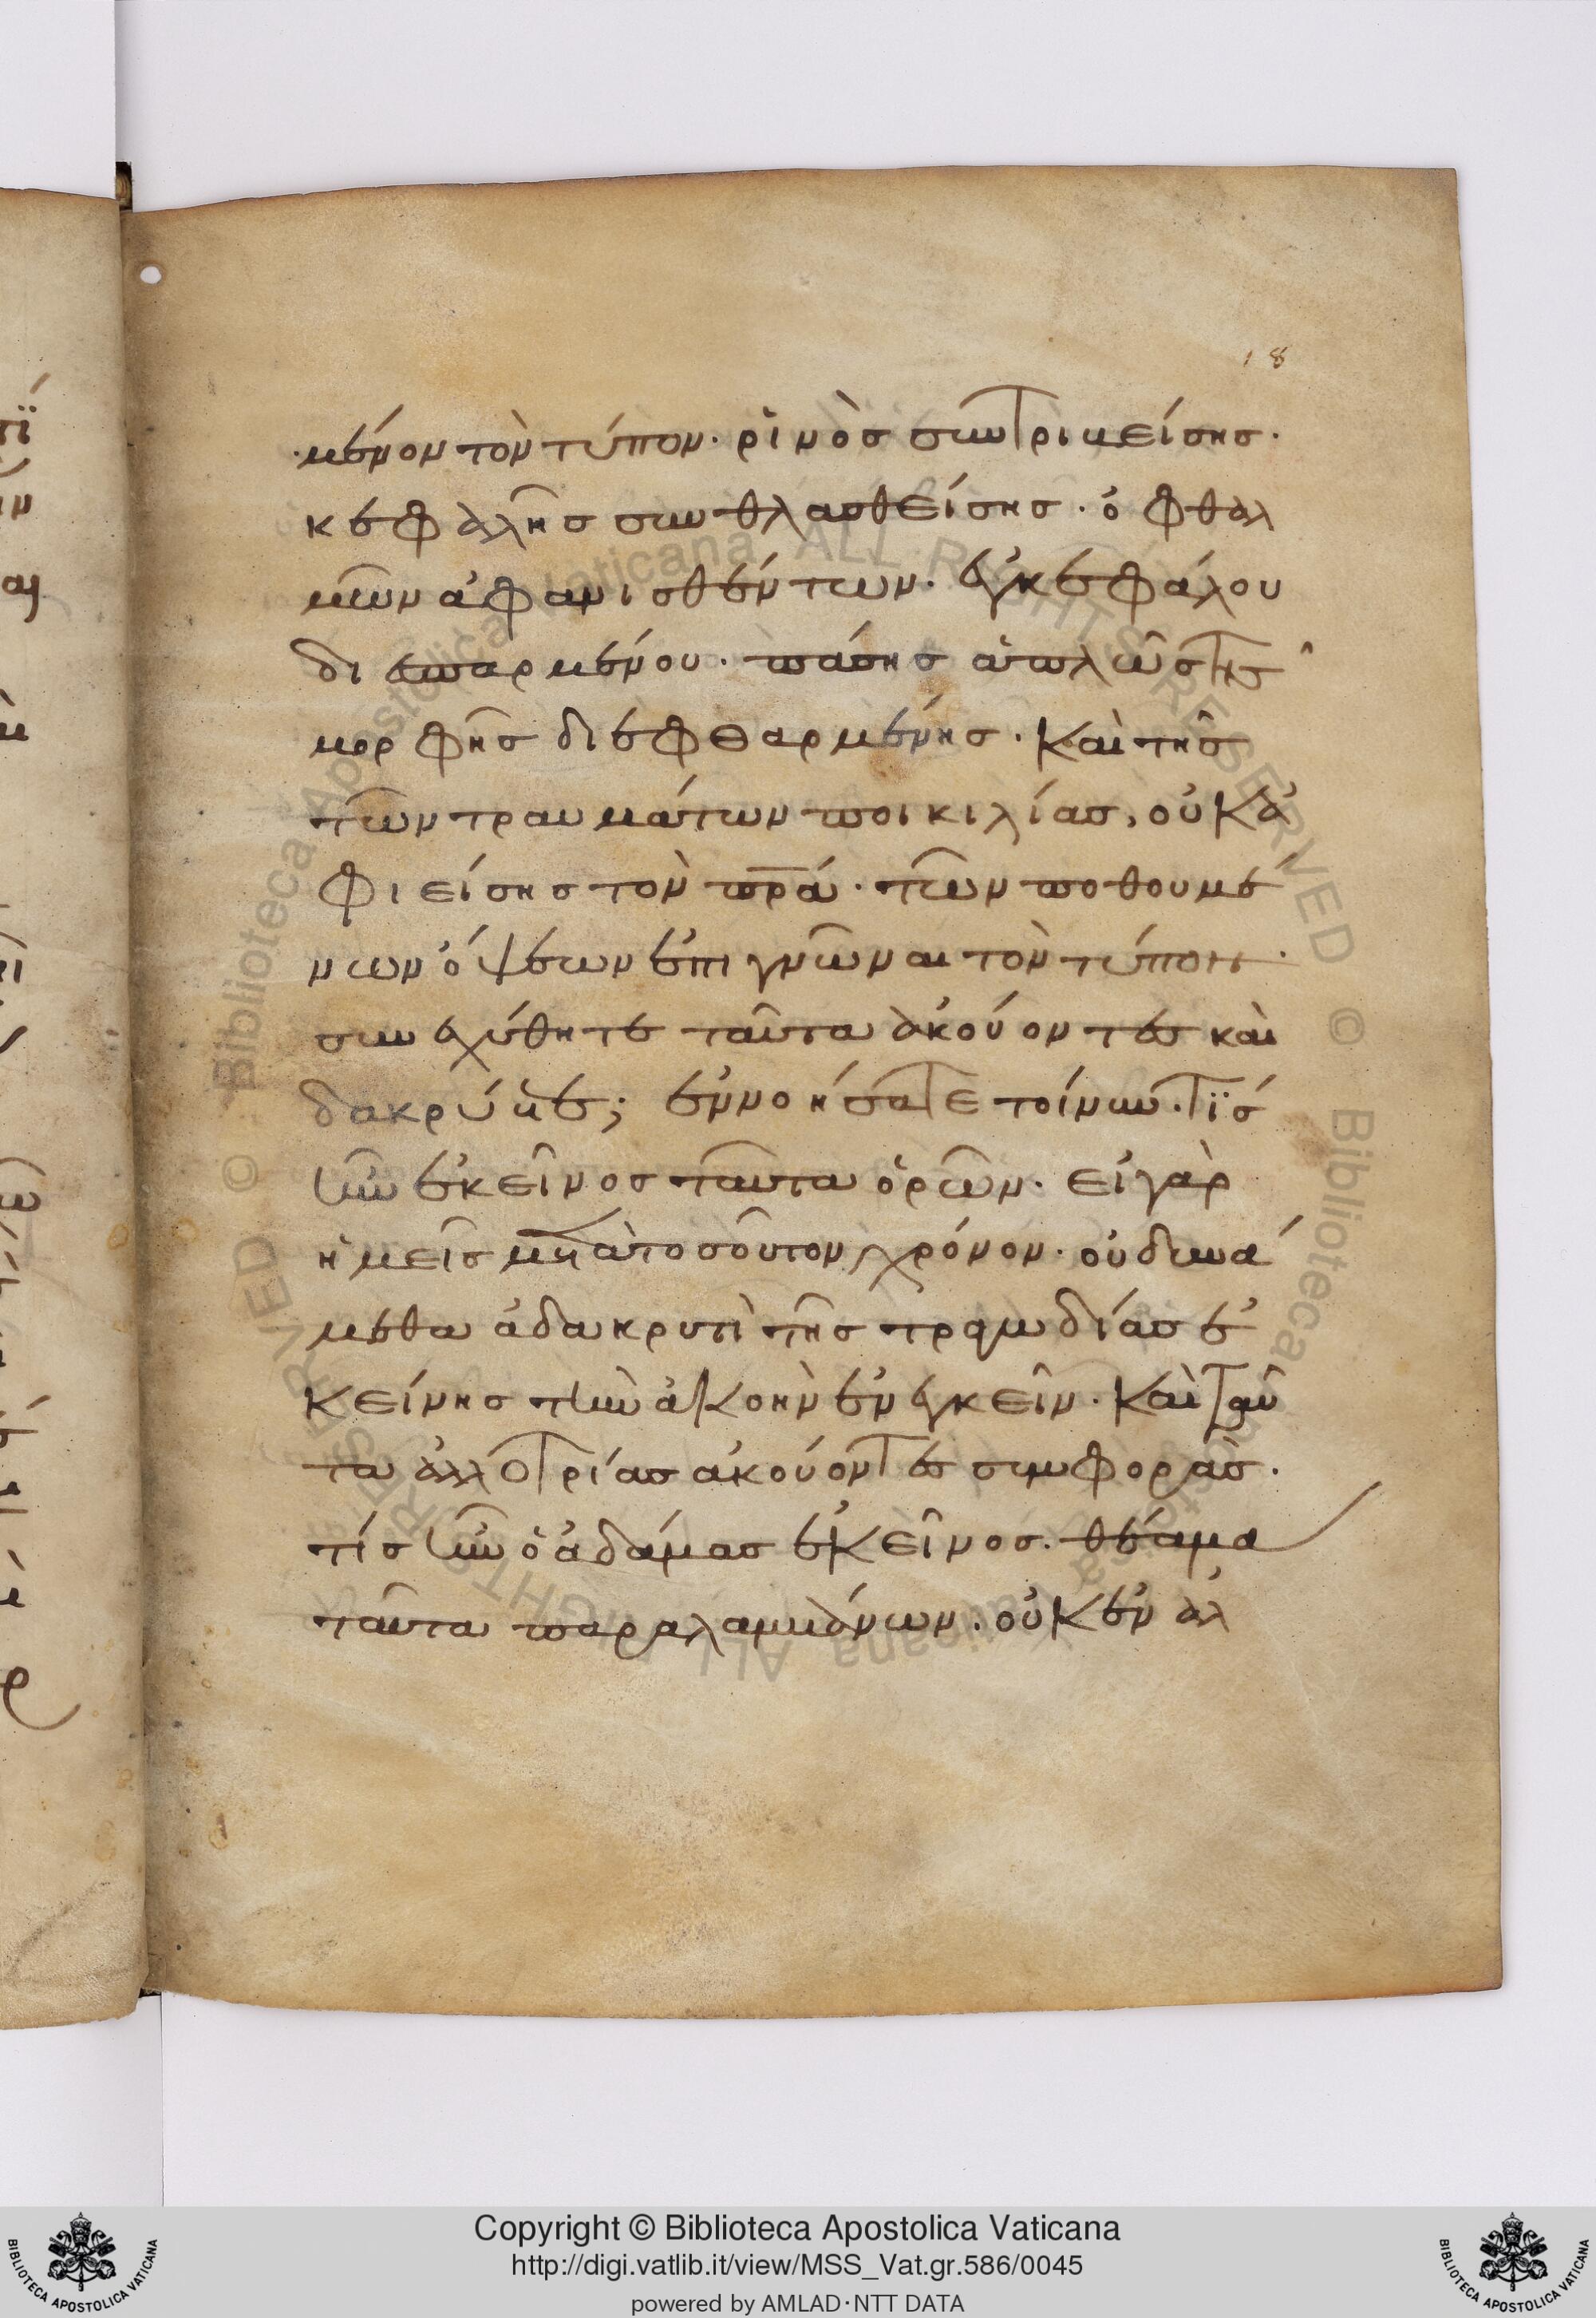 18
μένον τὸν τύπον· ῥινὸς συντριβείσης·
κεφαλῆς συνθλασθείσης· ὀφθαλ
μῶν ἀφανισθέντων· ἐγκεφάλου
διεσπαρμένου· πάσης ἁπλῶς τῆς
μορφῆς διεφθαρμένης· καὶ τῆς
τῶν τραυμάτων ποικιλίας, οὐκ ἀ
φιείσης τὸν πρ̅ά· τῶν ποθουμέ
νων ὄψεων ἐπιγνῶναι τὸν τύπον·
συνεχύθητε ταῦτα ἀκούοντες καὶ
δακρύετε; ἐννοήσατε τοίνυν· τίς
ἦν ἐκεῖνος ταῦτα ὁρῶν· εἰ γὰρ
ἡμεῖς μετὰ τοσοῦτον χρόνον· οὐ δυνά
μεθα ἀδακρυτὶ τῆς τραγωδίας ἐ
κείνης τὴν ἀκοὴν ἐνεγκεῖν· καὶ ταῦ
τα ἀλλοτρίας ἀκούοντες συμφορὰς·
τίς ἦν ὁ ἀδάμας ἐκεῖνος· θέαμα
ταῦτα παραλαμβάνων· οὐκ ἐν ἀλ
Copyright © Biblioteca Apostolica Vaticana
http://digi.vatlib.it/view/MSS_Vat.gr.586/0045
powered by AMLAD·NTT DATA